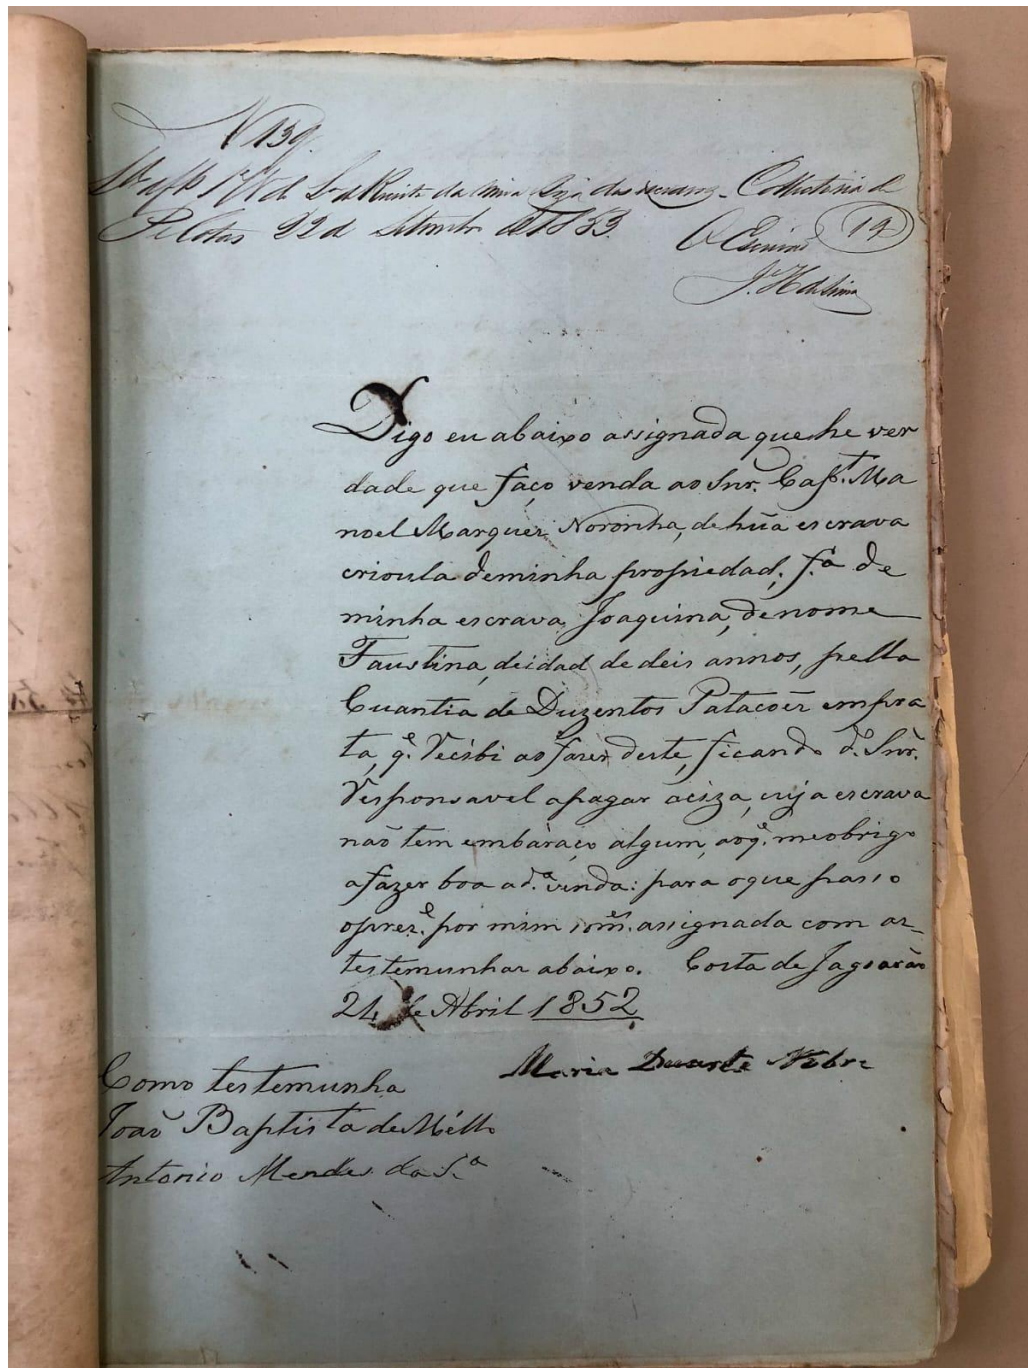 N 139
da meia Siza dos escravos - Collectoria de
Pelotas 22 d Setembro de 1853.
O Escrivão
14
J. H de Lima
Digo eu abaixo assignada que he ver
dade que faço venda ao Snr. Capt. Ma
noel Marques Noronha, de hũa escrava
crioula deminha propriedad; fa. de
minha escrava Joaquina, denome
Faustina, deidad de deis annos, pella
Cuantia de Duzentos Patacoẽs empra
ta, q.e Recibi ao fazer deste, ficando do. Snr.
Responsavel apagar aciza, cuja escrava
não tem embàraço algum, aoq.e meobrigo
afazer boa ad.a venda: para oque passo
oprez.e por mim som.e assignada com as_
testemunhas abaixo. Costa de Jagoarão
24 de Abril 1852
Maria Duarte Nobre
Como testemunha
João Baptista de Méllo
Antonio Mendes da S.a